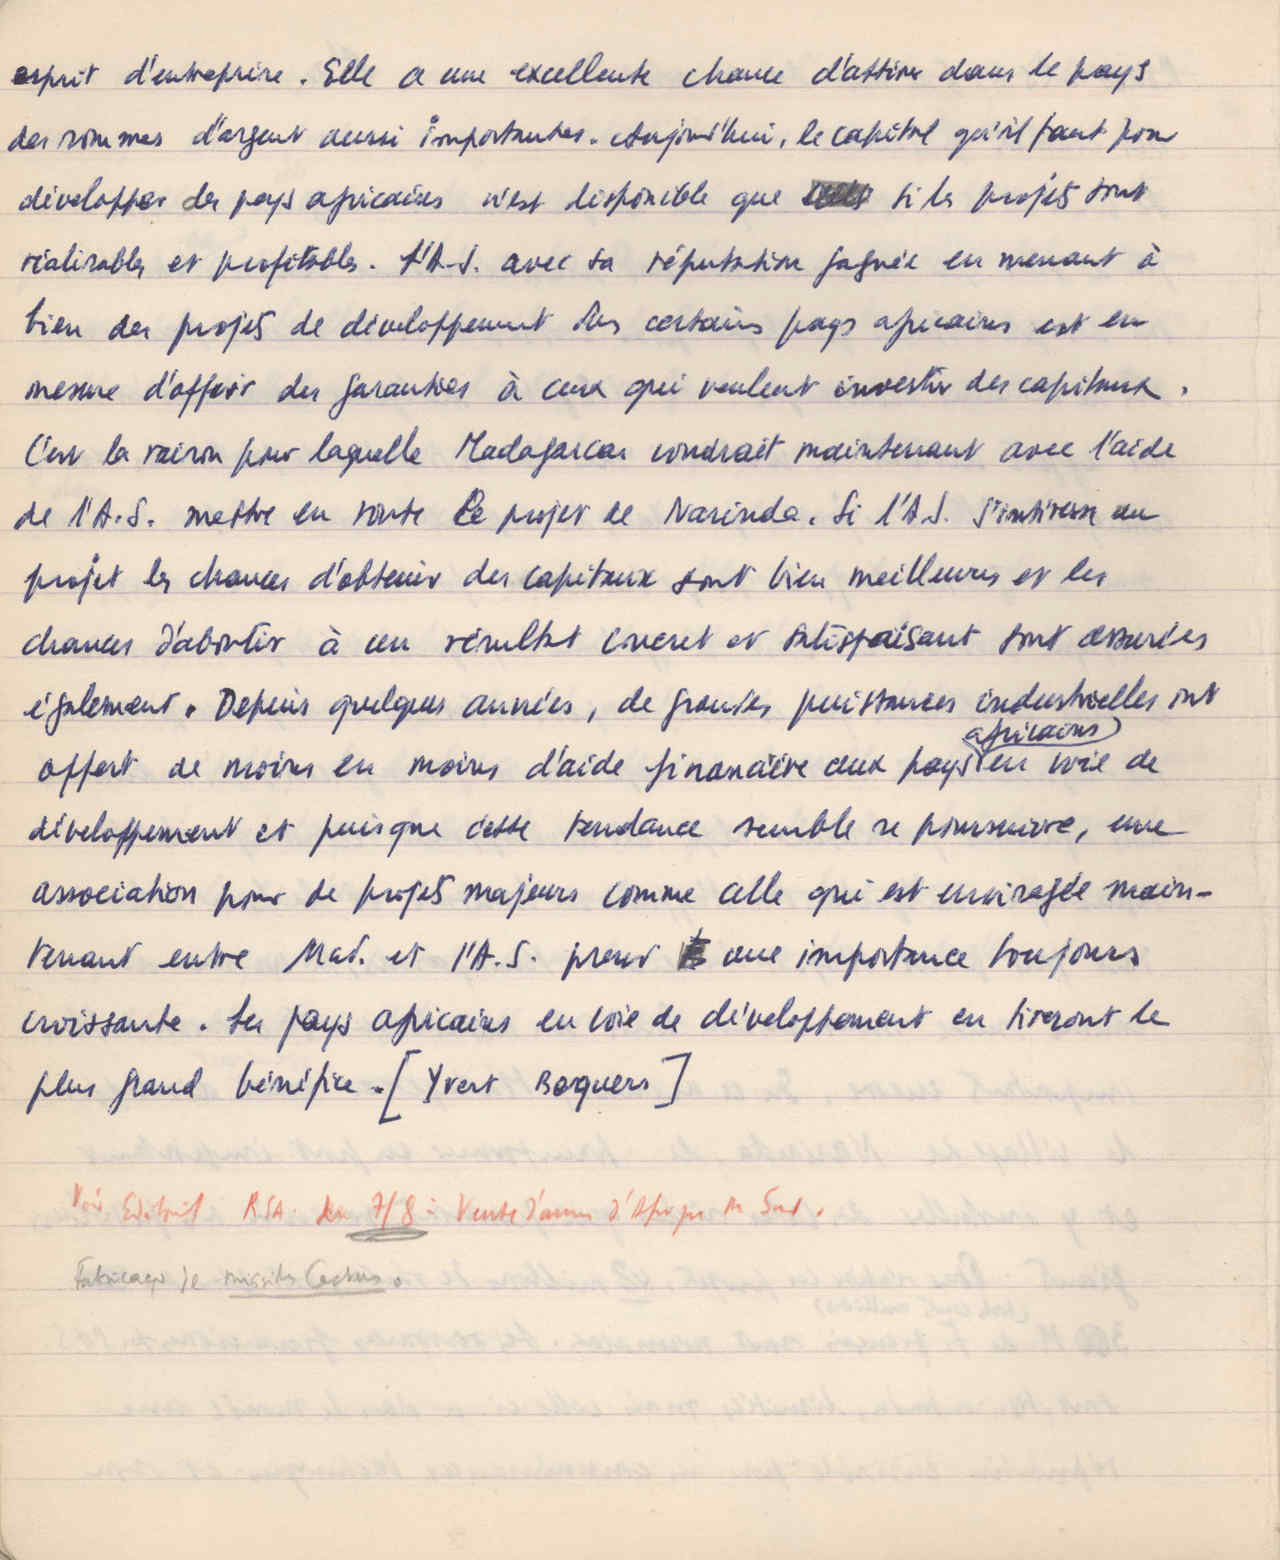 esprit d'entreprise. Elle a une excellente chance d'attirer dans le pays
des sommes d'argent aussi importantes. Aujourd'hui, le capital qu'il faut pour
développer des pays africains n'est disponible que si les projets sont
réalisables et profitables. L'A.S. avec sa réputation gagnée en menant à
bien des projets de développement ds certains pays africains est en
mesure d'offrir des garanties à ceux qui veulent investir des capitaux.
C'est la raison pour laquelle Madagascar voudrait maintenant avec l'aide
de l'A.S. mettre en route le projet de Narinda. Si l'A.S. s'intéresse au
projet les chances d'obtenir des capitaux sont bien meilleures et les
chances d'aboutir à un résultat concret et satisfaisant sont assurées
également. Depuis quelques années, de grandes puissances industrielles ont
africains
offert de moins en moins d'aide financière aux pays en voie de
développement et puisque cette tendance semble se poursuivre, une
association pour de projets majeurs comme celle qui est envisagée main-
tenant entre Mad. et l'A.S. prend une importance toujours
croissante. Les pays africains en voie de développement en tireront le
plus grand bénéfice. [Yvert Borquers]
Voir Editorial RSA. du 7/8 : Vente d'armes d'Afrique du Sud.
Fabrication de missiles Cactus.